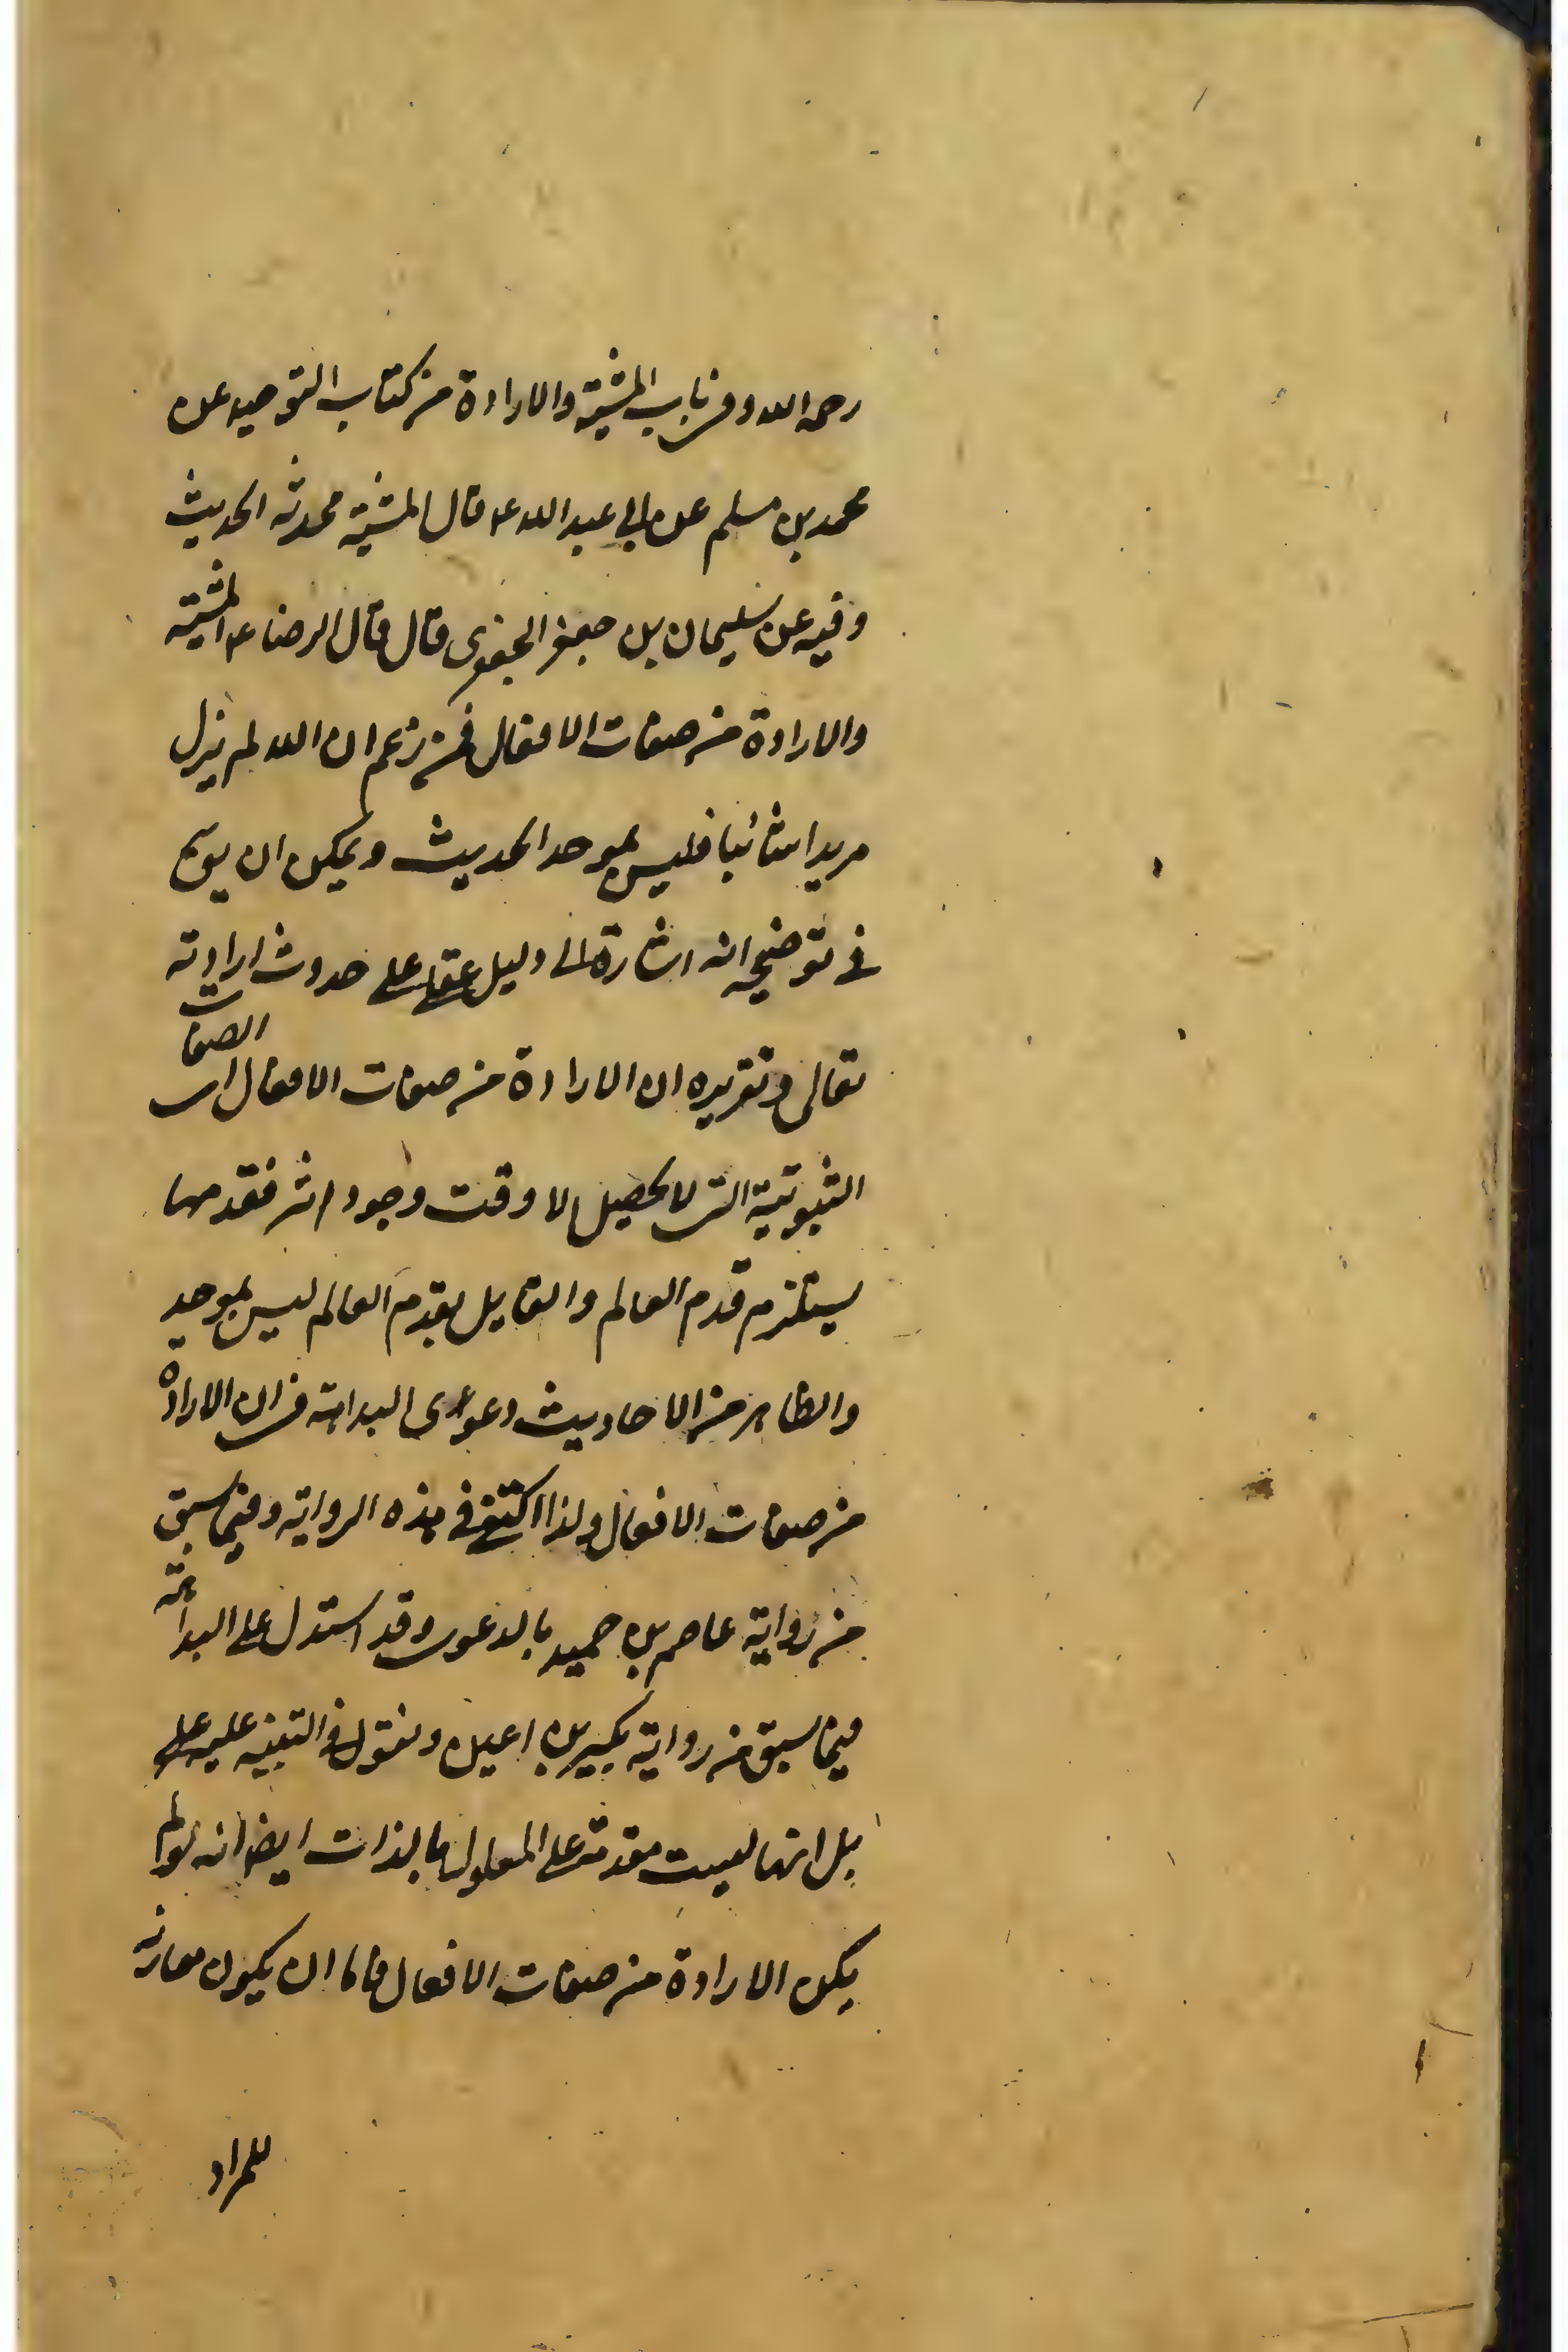 رحمه الله وفي باب المشية والارادة من كتاب التوحيد عن
محمد بن مسلم عن ابي عبد الله ع قال المشية محدثة الحديث
وفيه عن سليمان بن جعفر الجعفري قال قال الرضا ع المشية
والارادة من صفات الافعال فمن زعم ان الله لم يزل
مريدا شائيا فليس بموحد الحديث ويمكن ان يوجه
في توضيحه انه اشارة الى دليل عقلي على حدوث ارادته
تعالى وتقريره ان الارادة من صفات الافعال اى الصفات
الثبوتية التي لا تحصل الا وقت وجود اثر فقدمها
يستلزم قدم العالم والقايل بقدم العالم ليس بموحد
والظاهر من الاحاديث دعوى البداهة في ان الارادة
من صفات الافعال ولذا اكتفى في هذه الرواية وفيما سبق
من رواية عاصم بن حميد بالدعوى وقد استدل على البداهة
فيما سبق من رواية بكير بن اعين ونقول في التنبيه عليه على
بل انها ليست مقدمة على المعلول بالذات ايضا انه لو لم
يكن الارادة من صفات الافعال فاما ان يكون مقارنة
للمراد